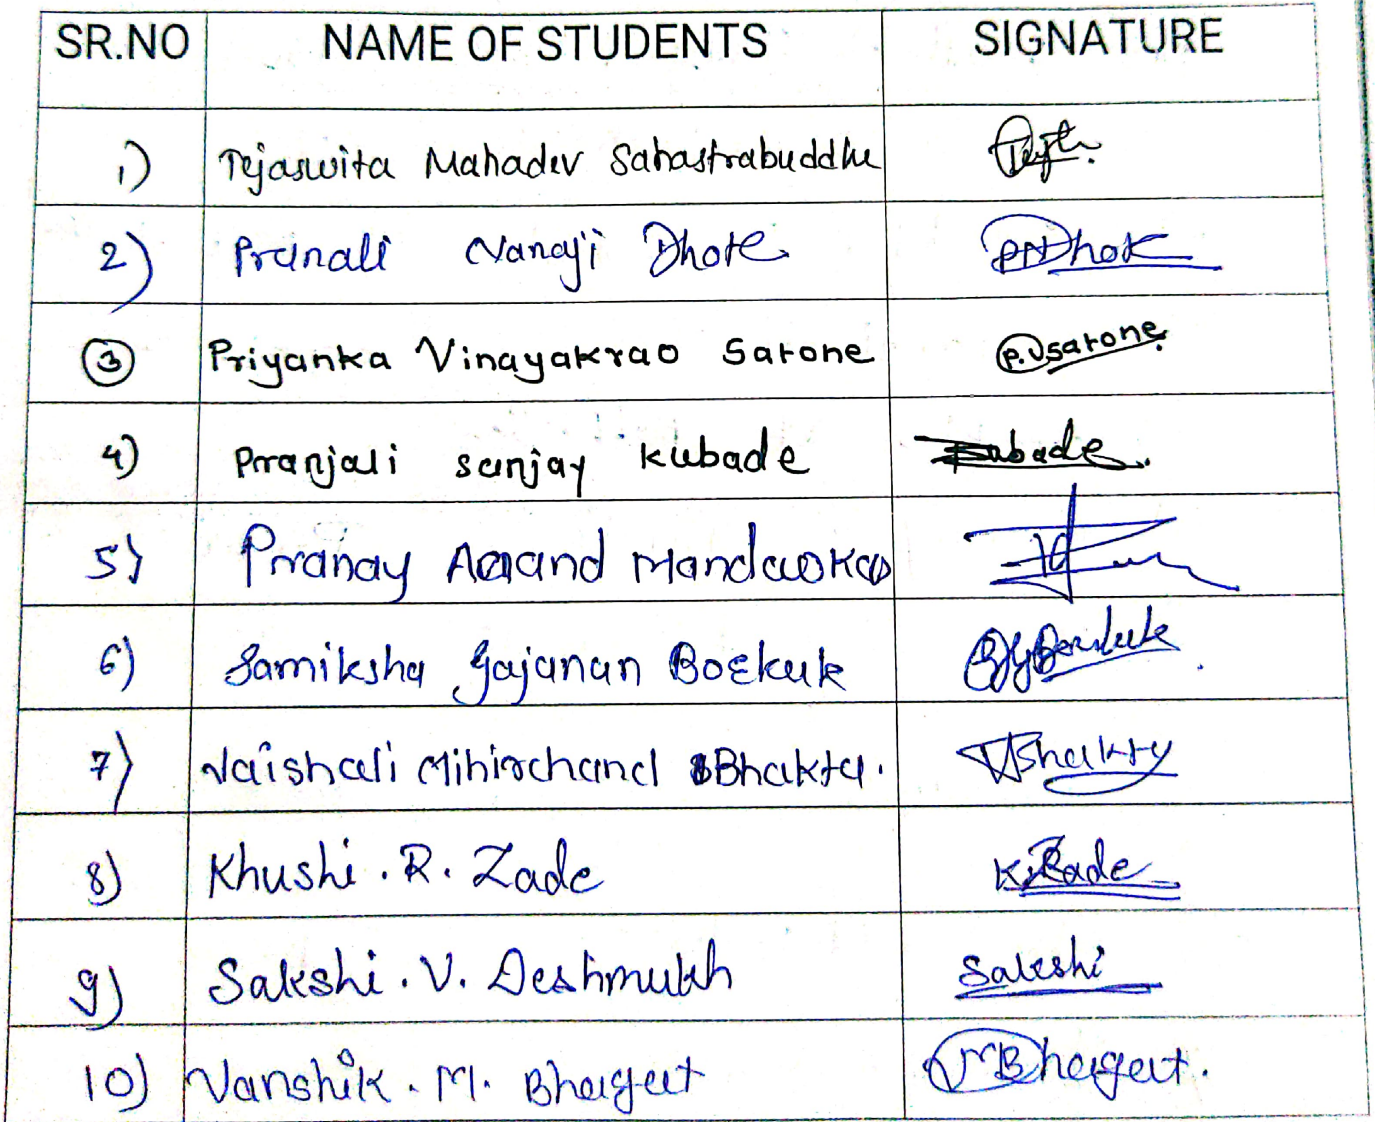 SR.NO NAME OF STUDENTS SIGNATURE
1) Tejaswita Mahadev Sahastrabuddhe
2) Pranali Nanaji Dhote PNDhote
3 Priyanka Vinayakrao Satone P.V Satone
4) Pranjali sanjay kubade kubade
5) Pranay Anand Mandaokar
6) Samiksha Gajanan Borkute
7) Vaishali Mihirchand Bhakta. VBhakta
8) Khushi. R. Zade K.R.Zade
9) Sakshi. V. Deshmukh Sakshi
10) Vanshik. M. Bhagat VMBhagat.